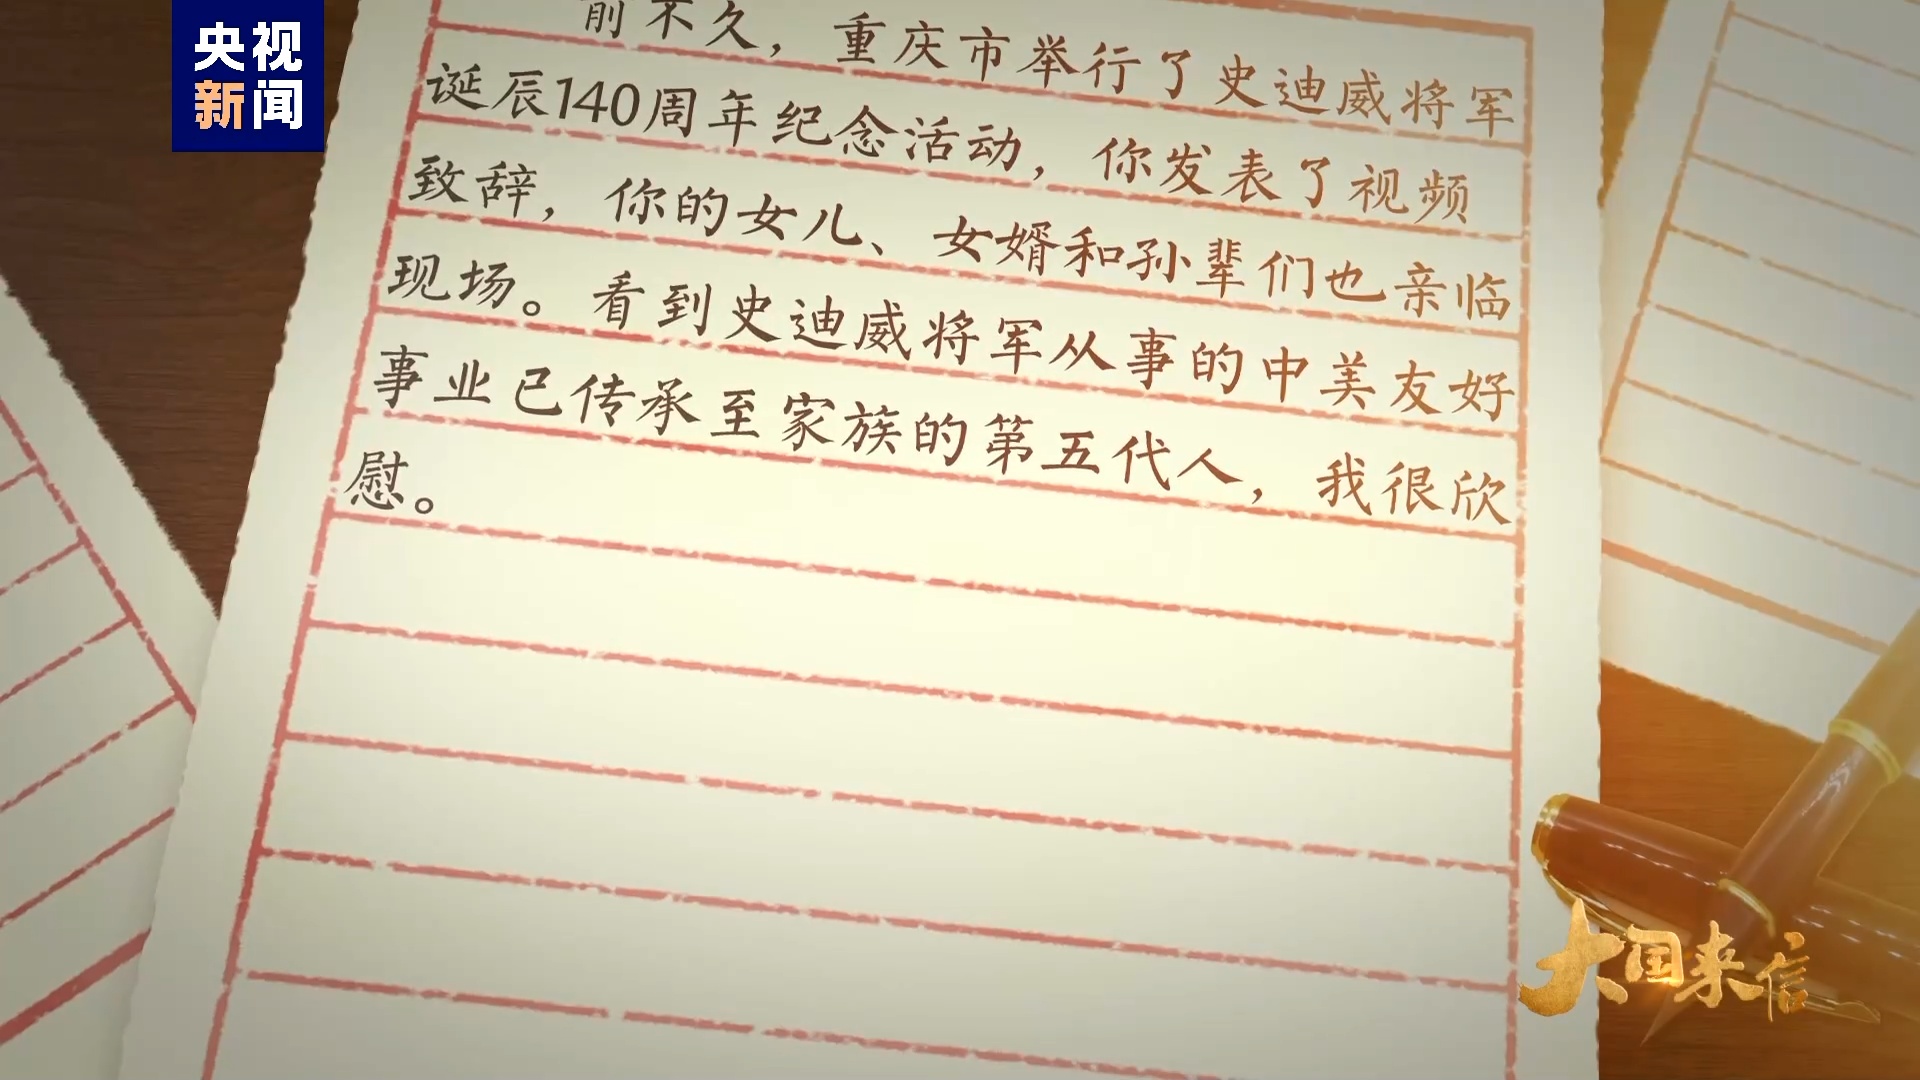 央视
新闻
前不久，重庆市举行了史迪威将军
诞辰140周年纪念活动，你发表了视频
致辞，你的女儿、女婿和孙辈们也亲临
现场。看到史迪威将军从事的中美友好
事业已传承至家族的第五代人，我很欣
慰。
大国来信